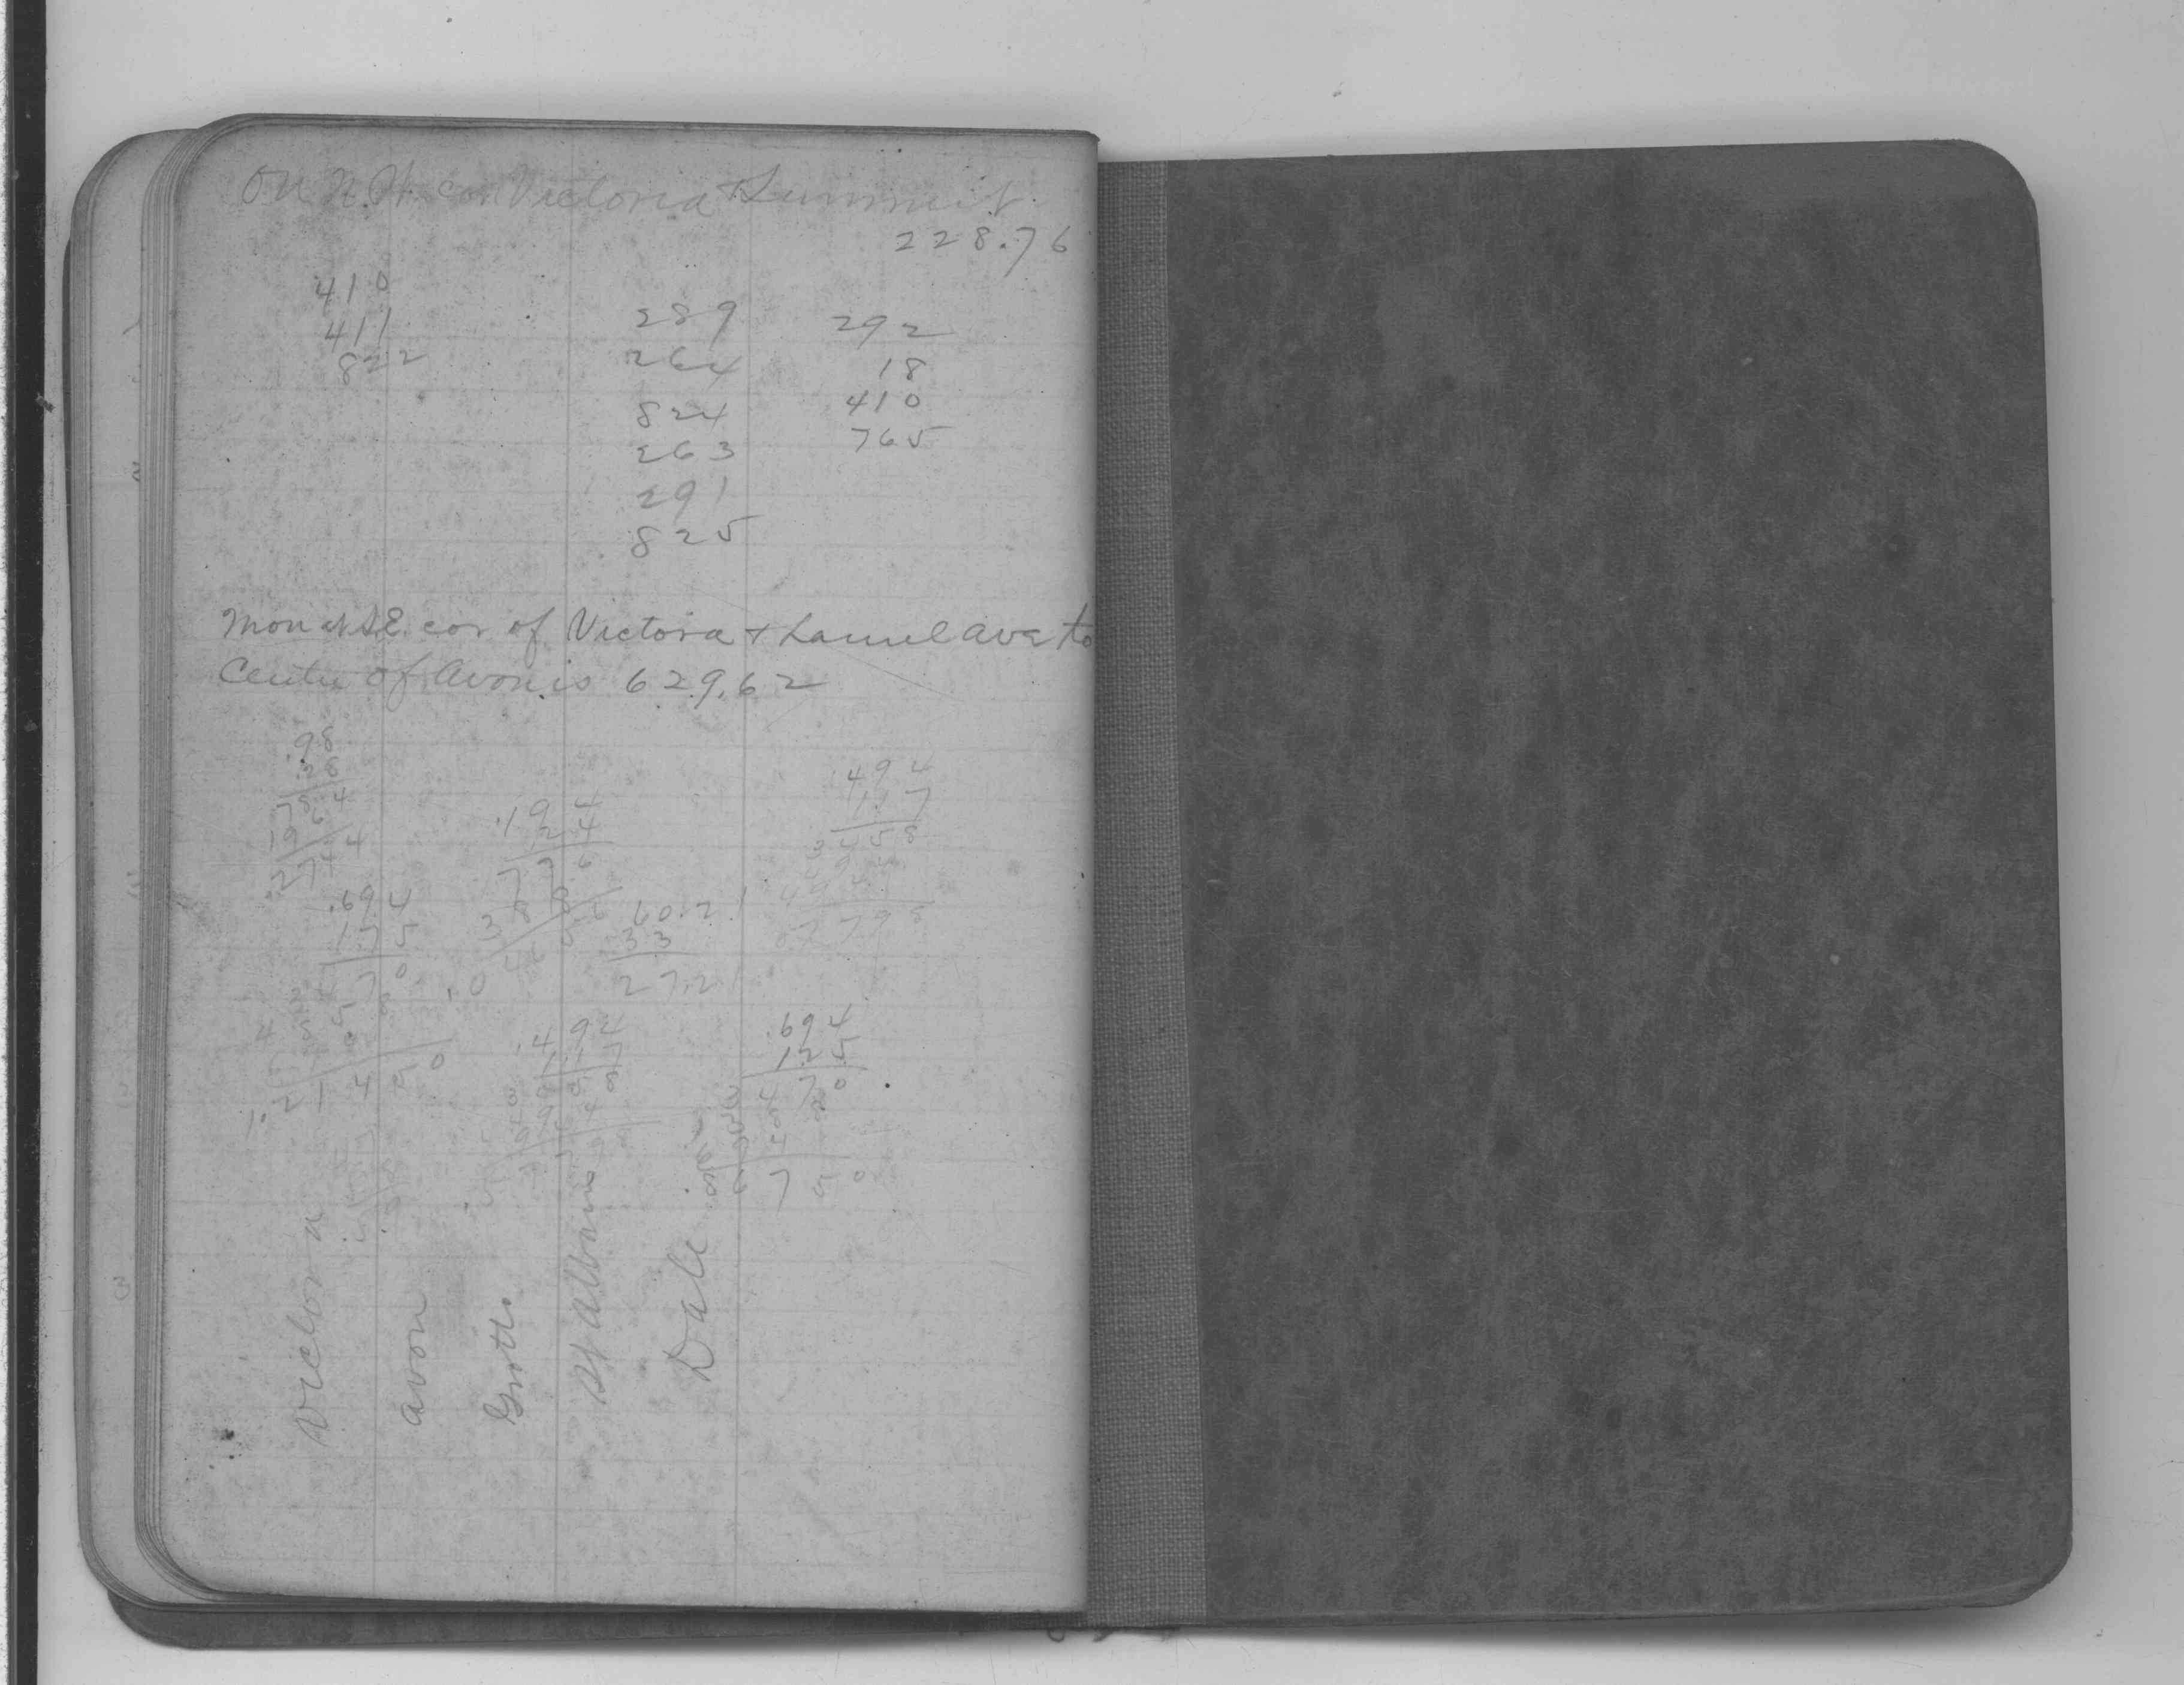 On N.W. cor Victoria & Summit
228.76
410
411
822
289
264
824
263
291
825
292
18
410
765
Mon at S.E. cor of Victora & Laurel ave to
Center of Avon is 629.62
.98
28
784
196
27.44
.194
24
776
388
.494
117
3458
494
494
57798
.694
175
60.21
33
27.21
.494
117
.694
125
3470
Victoria
Avon
Grotto
St Albans
Dale